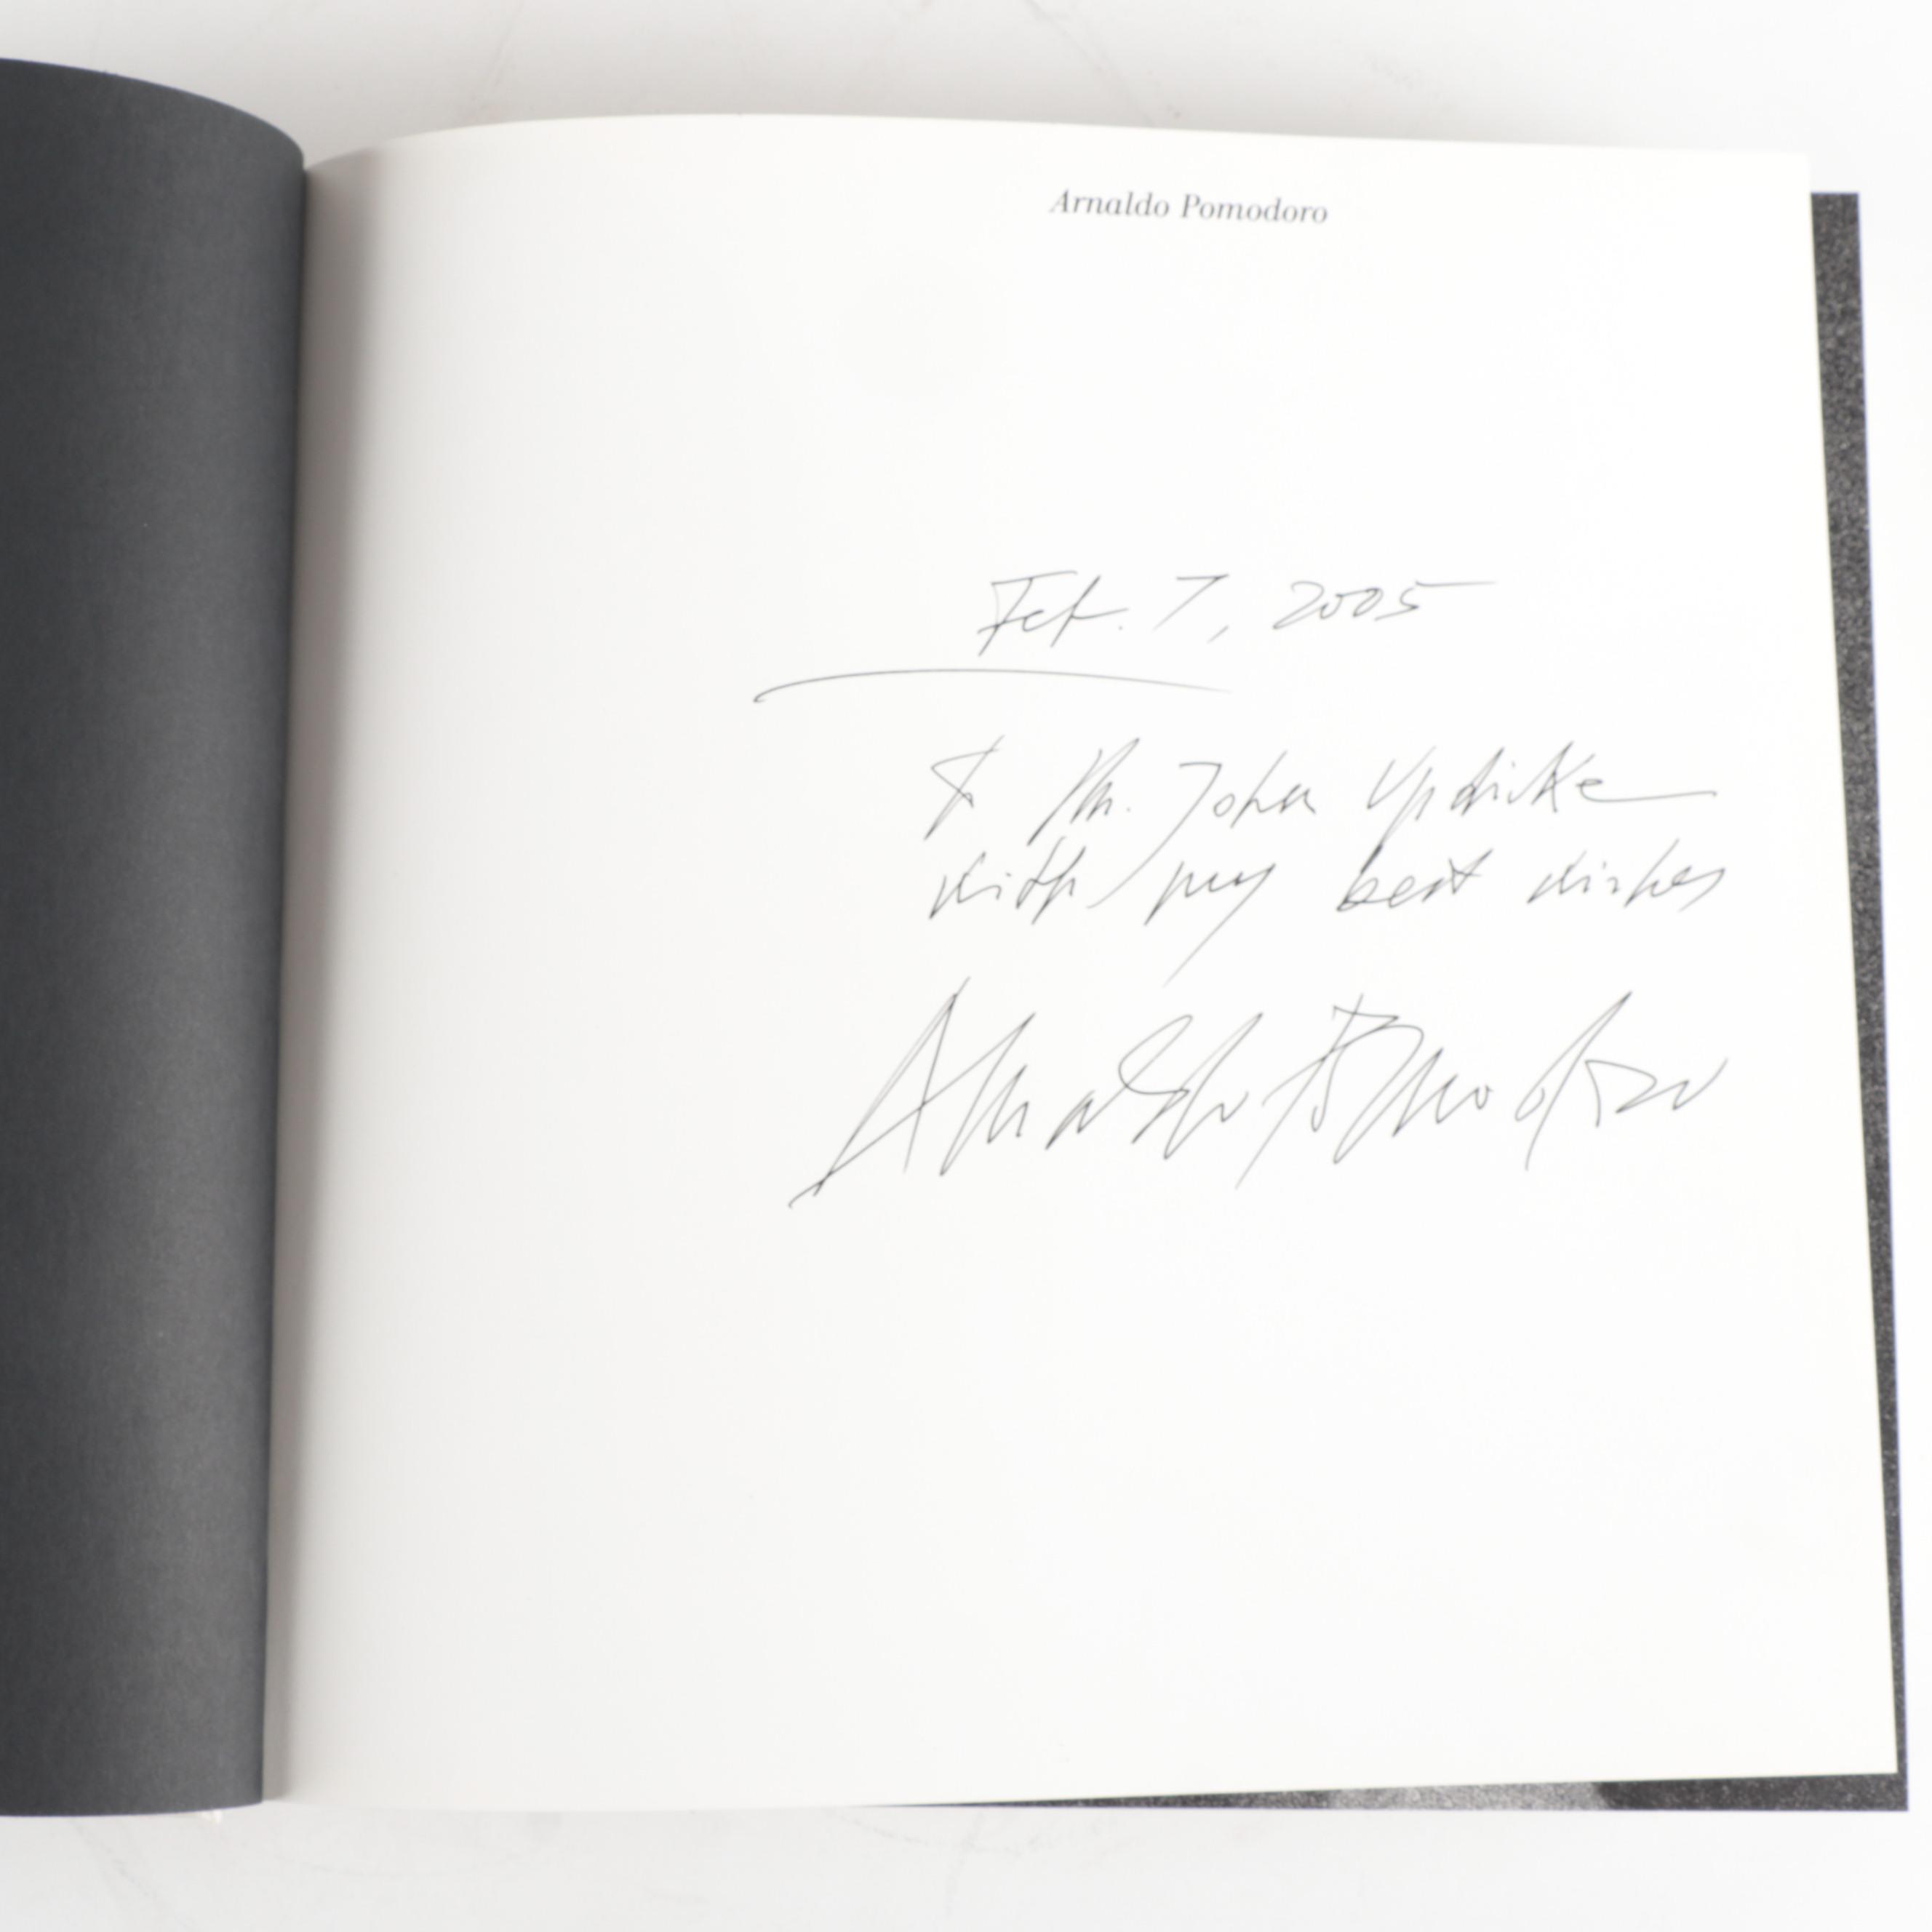 Arnaldo Pomodoro
Feb. 7, 2005
to Mr. John Updike
with my best wishes
Arnaldo Pomodoro